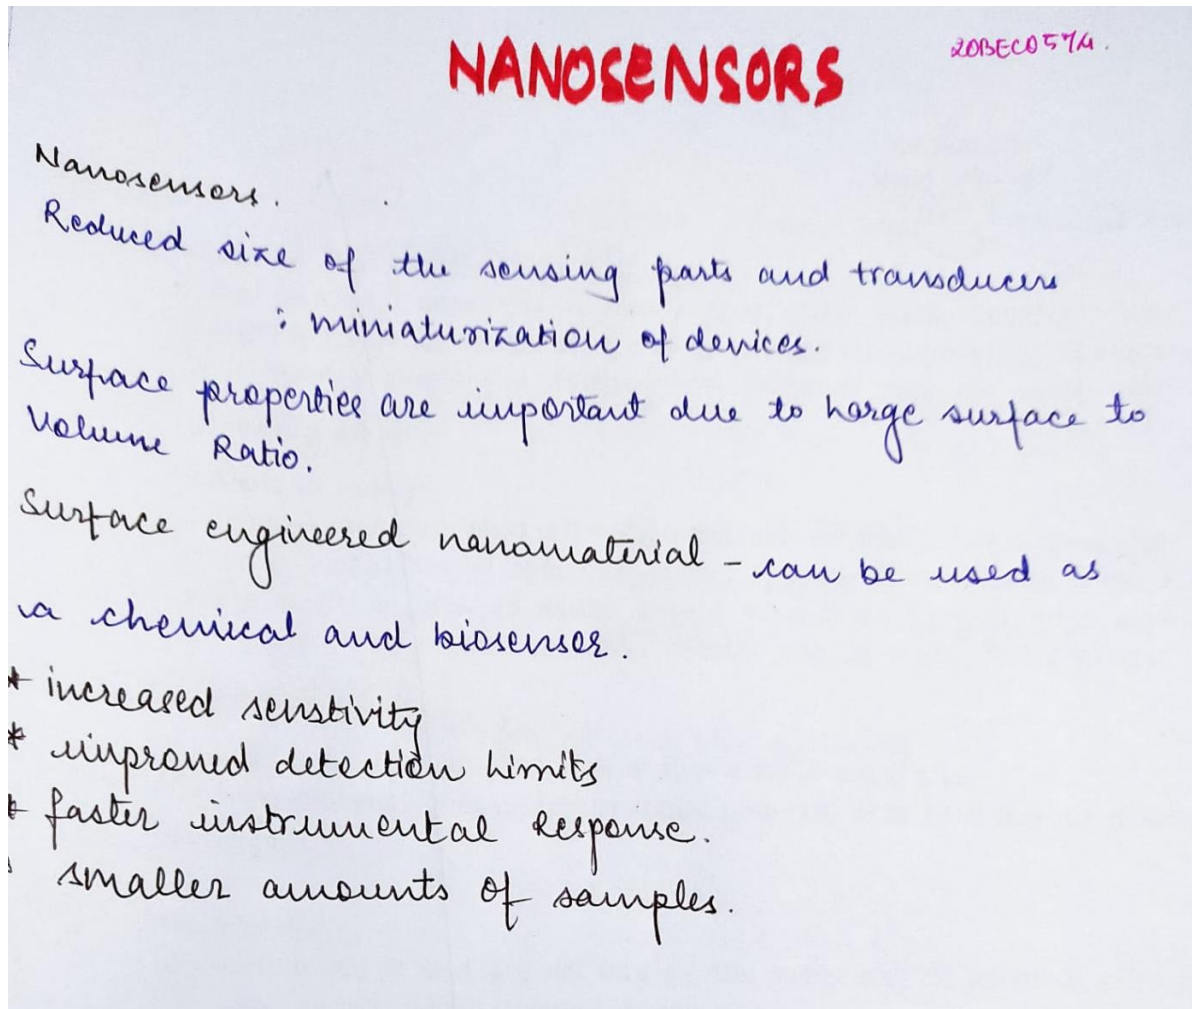 NANOSENSORS
20BEC0574.
Nanosensors.
Reduced size of the sensing parts and transducers
: miniaturization of devices.
Surface properties are important due to large surface to
Volume Ratio.
Surface engineered nanomaterial - can be used as
a chemical and biosensor.
* increased senstivity
* improved detection limits
* faster instrumental Response.
smaller amounts of samples.